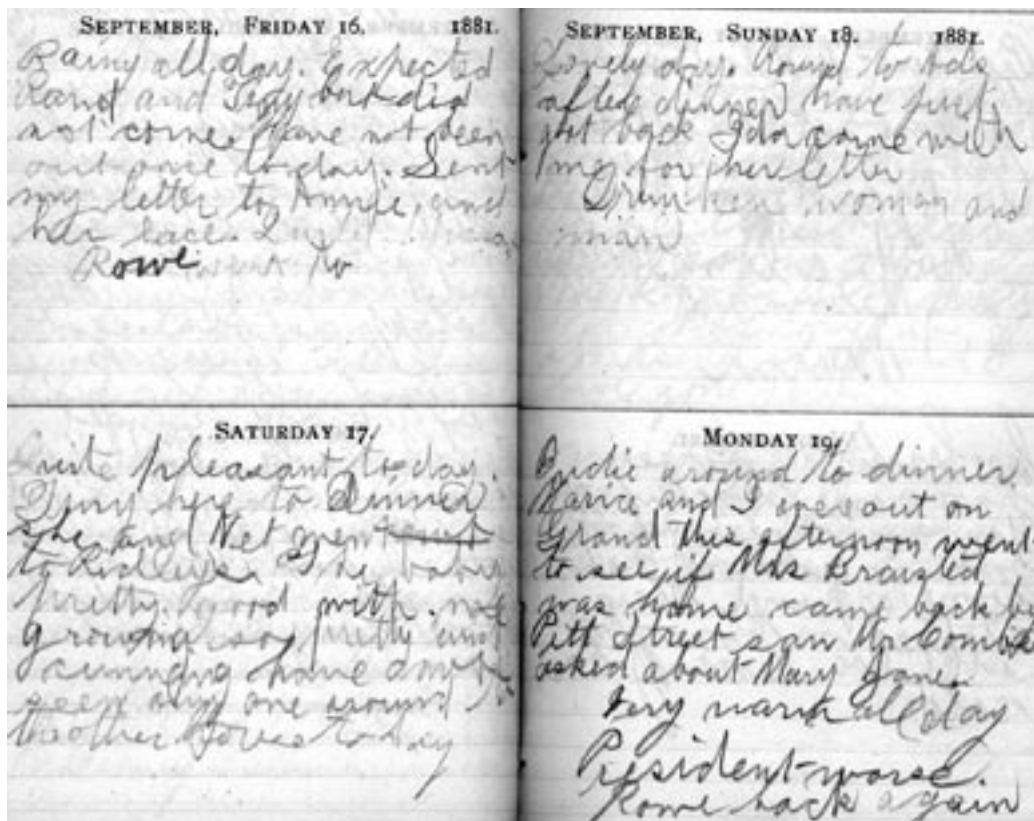 SEPTEMBER, FRIDAY 16. 1881.
Rainy all day. Expected
Rand and Jenny but did
not come. Have not been
out once to day. Sent
my letter to Annie, and
her lace.
Rowe went to
SATURDAY 17.
Quite pleasant to day.
Jenny here to Dinner
she and Net went out
to Ridleys. The baby
pretty good with me
growing so pretty and
cunning have
seen any one around
to day
SEPTEMBER, SUNDAY 18. 1881.
Lovely day. Round to Ads
after dinner have just
got back Ida come with
me for her letter
Drunken woman and
man
MONDAY 19.
around to dinner
and I was out on
Grand this afternoon went
to see if Mrs Braisted
was home came back by
Pitt Street saw Mr Combs
asked about Mary Jane.
Very warm all day
President worse.
Rowe back again